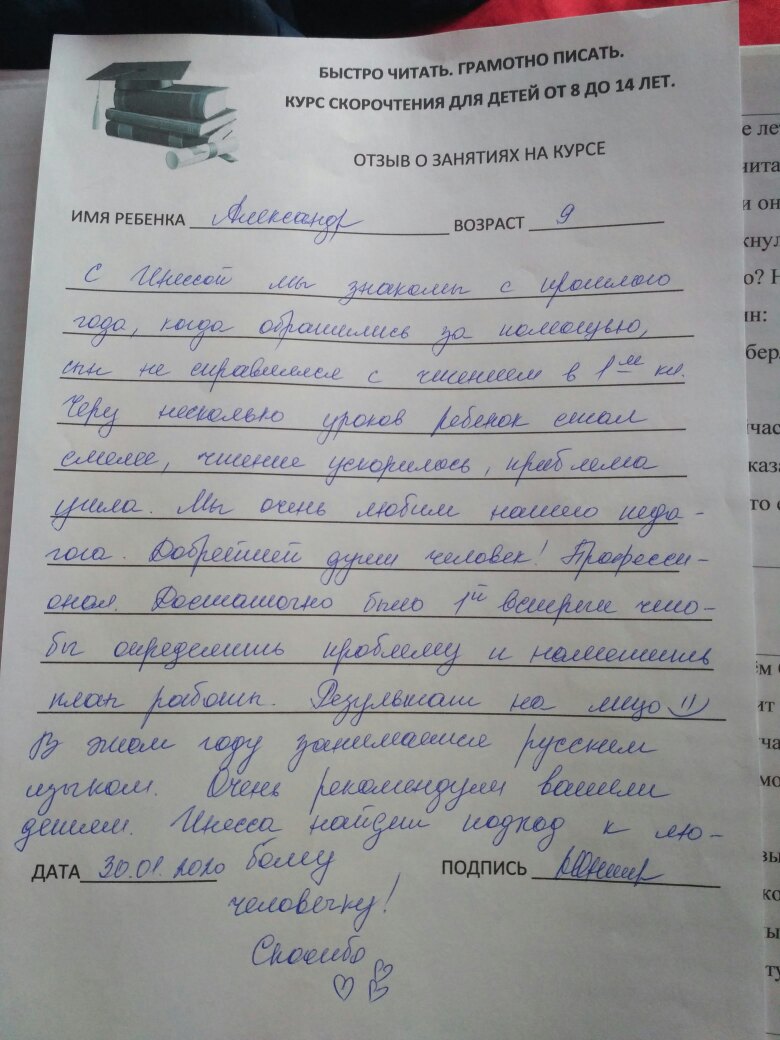 БЫСТРО ЧИТАТЬ. ГРАМОТНО ПИСАТЬ.
КУРС СКОРОЧТЕНИЯ ДЛЯ ДЕТЕЙ ОТ 8 ДО 14 ЛЕТ.
ОТЗЫВ О ЗАНЯТИЯХ НА КУРСЕ
ИМЯ РЕБЕНКА Александр ВОЗРАСТ 9
С Инессой мы знакомы с прошлого
года, когда обратились за помощью,
сын не справлялся с чтением в 1м кл.
Черу несколько уроков ребенок стал
смелее, чтение ускорилось, проблема
ушла. Мы очень любим нашего педа-
гога. Добрейшей души человек! Професси-
онал. Достаточно было 1й встречи что-
бы определить проблему и наметить
план работы. Результат на лицо
В этом году занимаемся русским
языком. Очень рекомендуем вашим
детям. Инесса найдет подход к лю-
ДАТА 30.01.2020 бому ПОДПИСЬ
человечку!
Спасибо